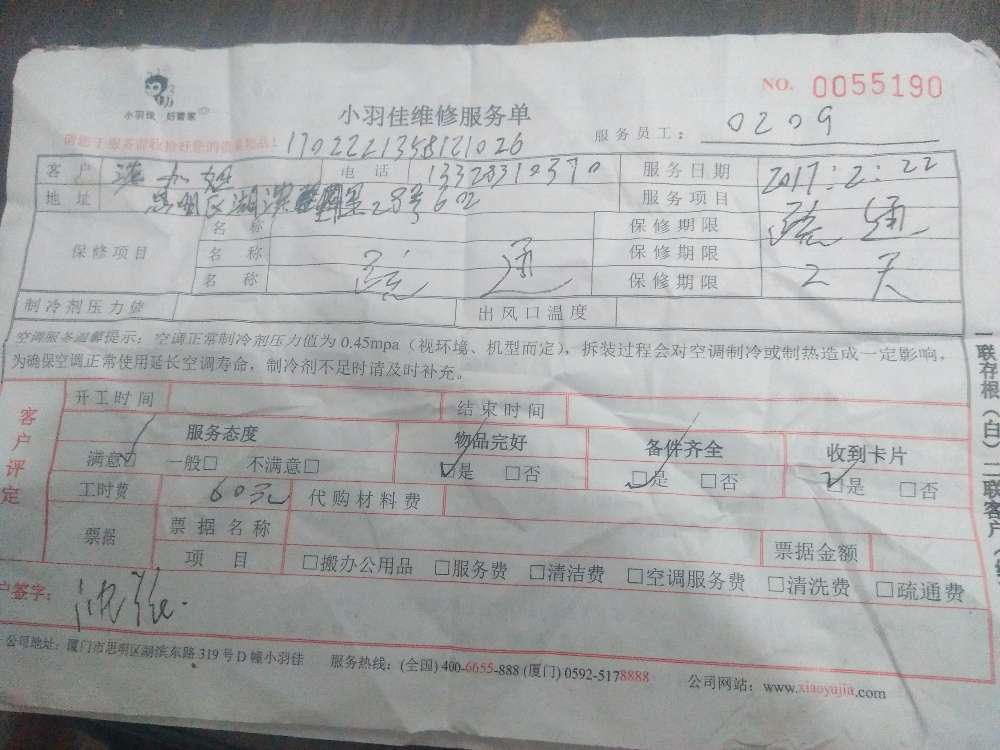 小羽佳 好管家
NO. 0055190
小羽佳维修服务单
服务员工: 0209
请您于服务前收拾好您的贵重物品! 1702221358121026
客户 电话 13328310370 服务日期 2017:2:22
地址 思明区湖滨 28号602 服务项目 疏通
保修项目 名称 保修期限
名称 疏通 保修期限 2天
名称 保修期限
制冷剂压力值 出风口温度
空调服务温馨提示:空调正常制冷剂压力值为 0.45mpa(视环境、机型而定),拆装过程会对空调制冷或制热造成一定影响,
为确保空调正常使用延长空调寿命,制冷剂不足时请及时补充。
客户评定
开工时间 结束时间
服务态度 物品完好 备件齐全 收到卡片
满意☑ 一般□ 不满意□ ☑是 □否 ☑是 □否 ☑是 □否
工时费 60元 代购材料费
票据 票据名称 票据金额
项目 □搬办公用品 □服务费 □清洁费 □空调服务费 □清洗费 □疏通费
户签字:
公司地址:厦门市思明区湖滨东路 319 号 D 幢小羽佳 服务热线:(全国) 400-6655-888 (厦门) 0592-5178888 公司网站:www.xiaoyujia.com
一联存根(白)二联客户(